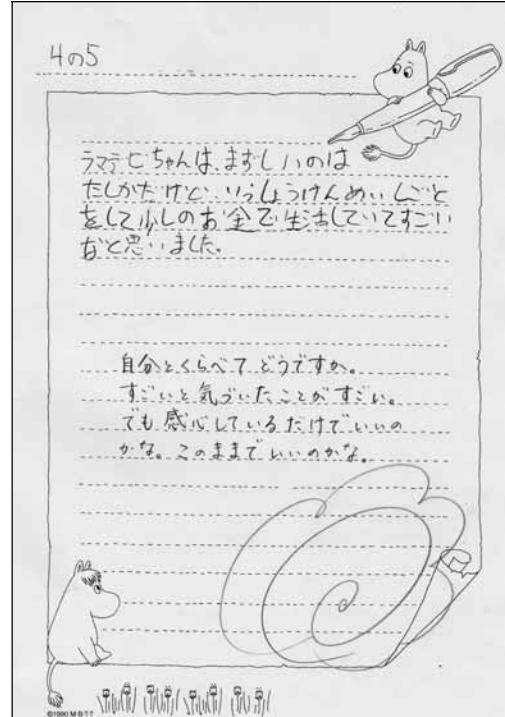 4の5
ラマテセちゃんは、まずしいのは
たしかだけど、いっしょうけんめいしごと
をして少しのお金で生活していてすごい
なと思いました。
自分とくらべてどうですか。
すごいと気づいたことがすごい。
でも感心しているだけでいいの
かな。このままでいいのかな。
©1990 M・B・T・T